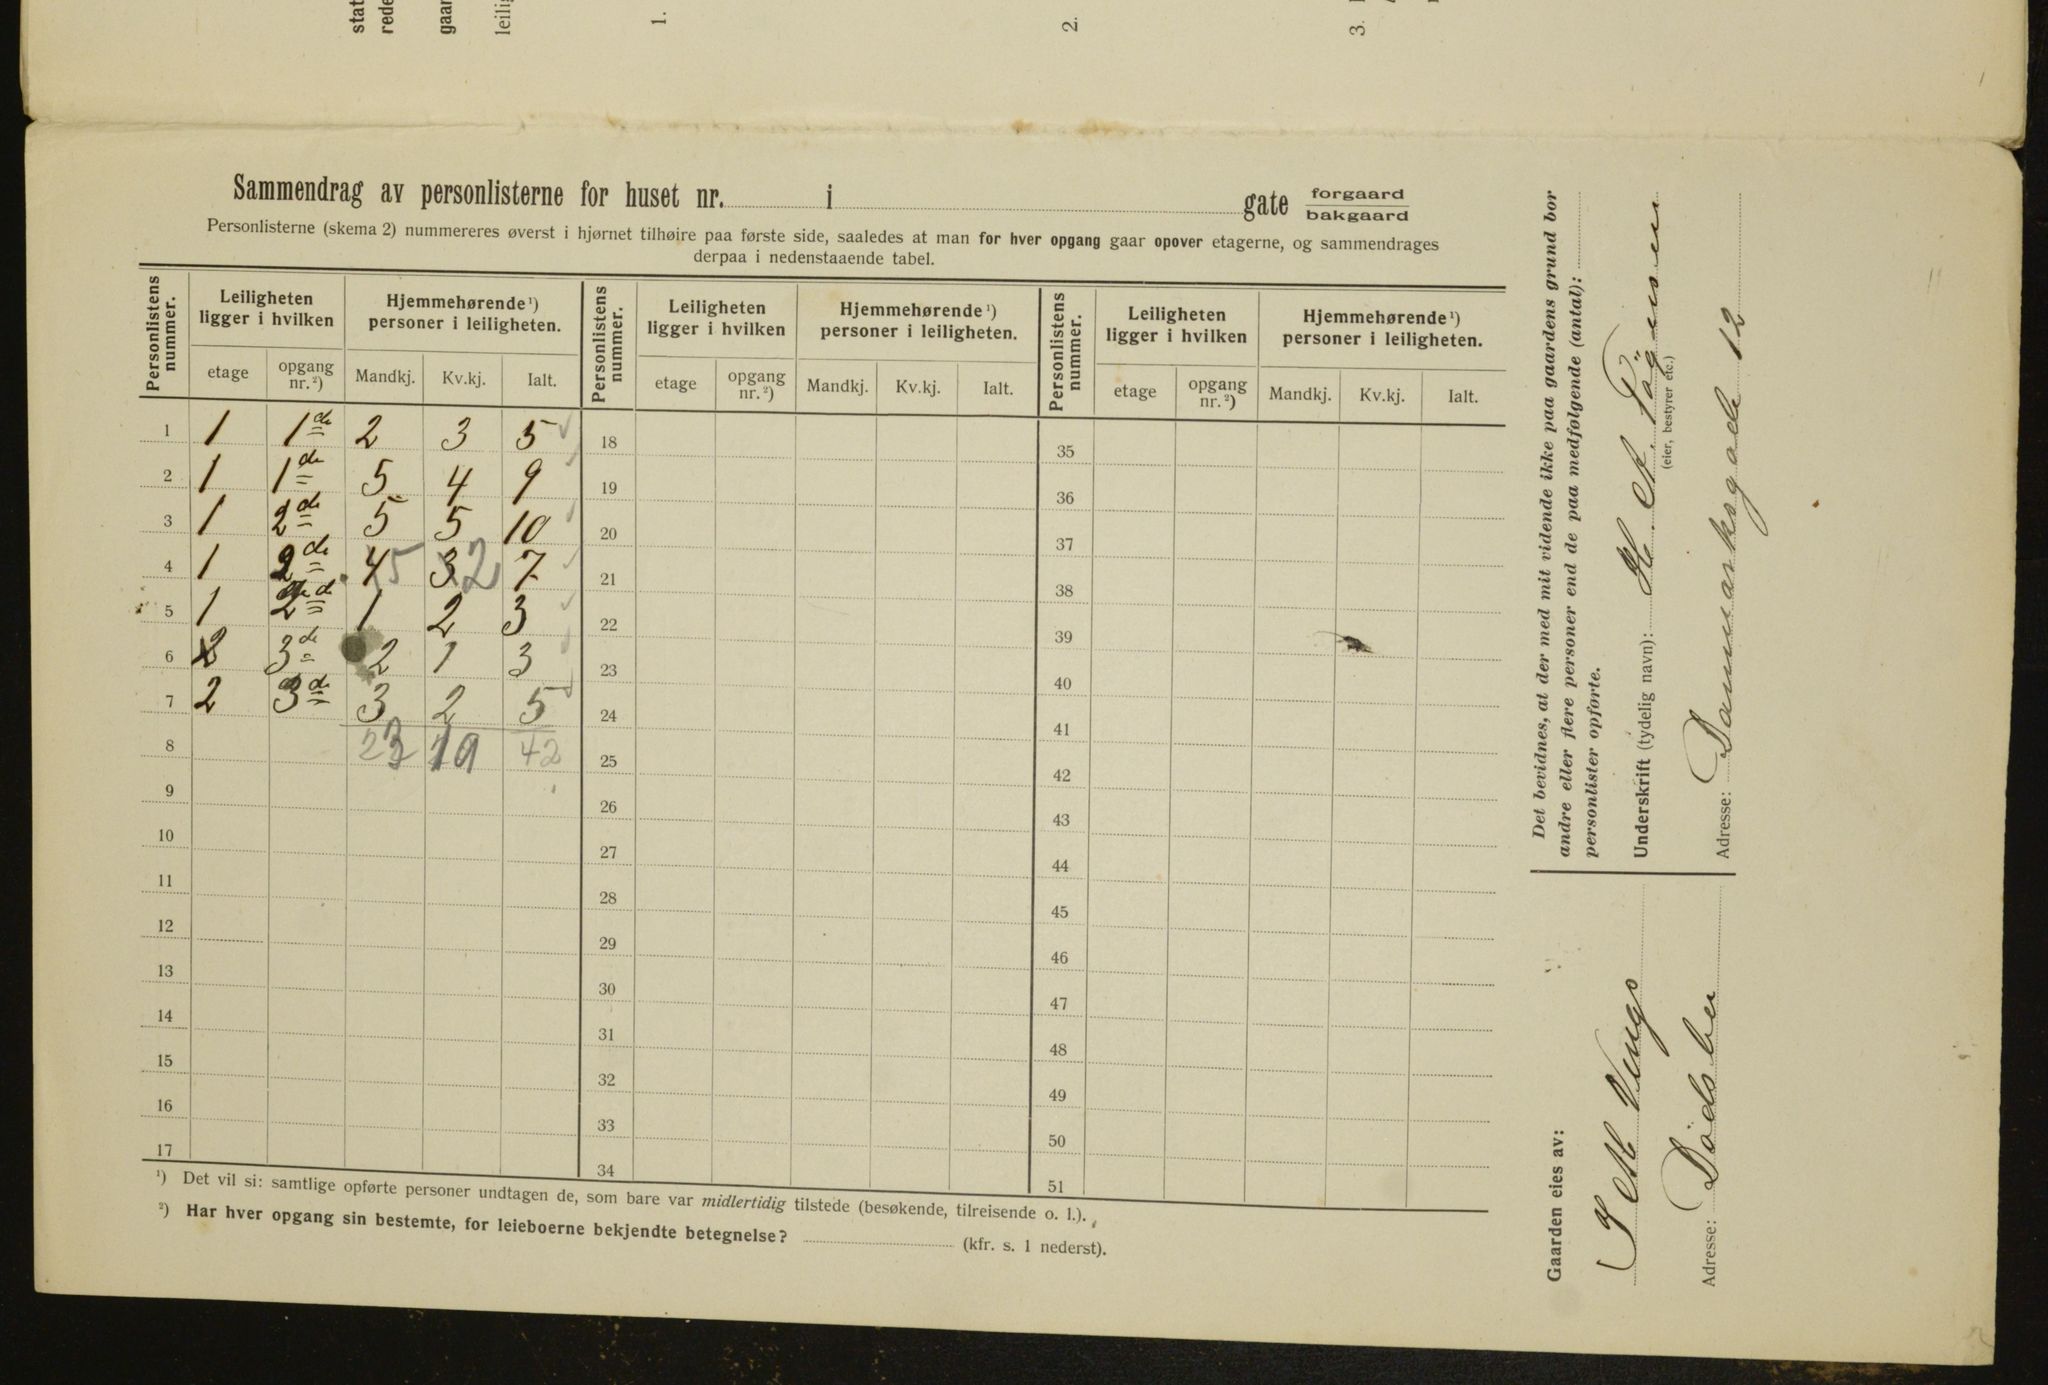 Sammendrag av personlisterne for huset nr. i gate forgaard bakgaard
Personlisterne (skema 2) nummereres øverst i hjørnet tilhøire paa første side, saaledes at man for hver opgang gaar opover etagerne, og sammendrages
derpaa i nedenstaaende tabel.
Personlistens nummer. Leiligheten ligger i hvilken Hjemmehørende ¹) personer i leiligheten. Personlistens nummer. Leiligheten ligger i hvilken Hjemmehørende ¹) personer i leiligheten. Personlistens nummer. Leiligheten ligger i hvilken Hjemmehørende ¹) personer i leiligheten.
etage opgang nr. ²) Mandkj. Kv.kj. Ialt. etage opgang nr. ²) Mandkj. Kv.kj. Ialt. etage opgang nr. ²) Mandkj. Kv.kj. Ialt.
1 1 1de 2 3 5 18 35
2 1 1de 5 4 9 19 36
3 1 2de 5 5 10 20 37
4 1 2de 4 5 3 2 7 21 38
5 1 2de 1 2 3 22 39
6 2 3de 2 1 3 23 40
7 2 3de 3 2 5 24 41
8 23 19 42 25 42
9 26 43
10 27 44
11 28 45
12 29 46
13 30 47
14 31 48
15 32 49
16 33 50
17 34 51
¹) Det vil si: samtlige opførte personer undtagen de, som bare var midlertidig tilstede (besøkende, tilreisende o. l.).
²) Har hver opgang sin bestemte, for leieboerne bekjendte betegnelse? (kfr. s. 1 nederst).
Det bevidnes, at der med mit vidende ikke paa gaardens grund bor
andre eller flere personer end de paa medfølgende (antal):
personlister opførte.
Underskrift (tydelig navn):
(eier, bestyrer etc.)
Adresse: Danmarksgade 12
Gaarden eies av:
Adresse:
stat
rede
gaar
leilig
1.
2.
3.